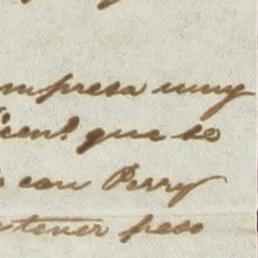 mpresa muy
cent. que se
con Perry
tener peso